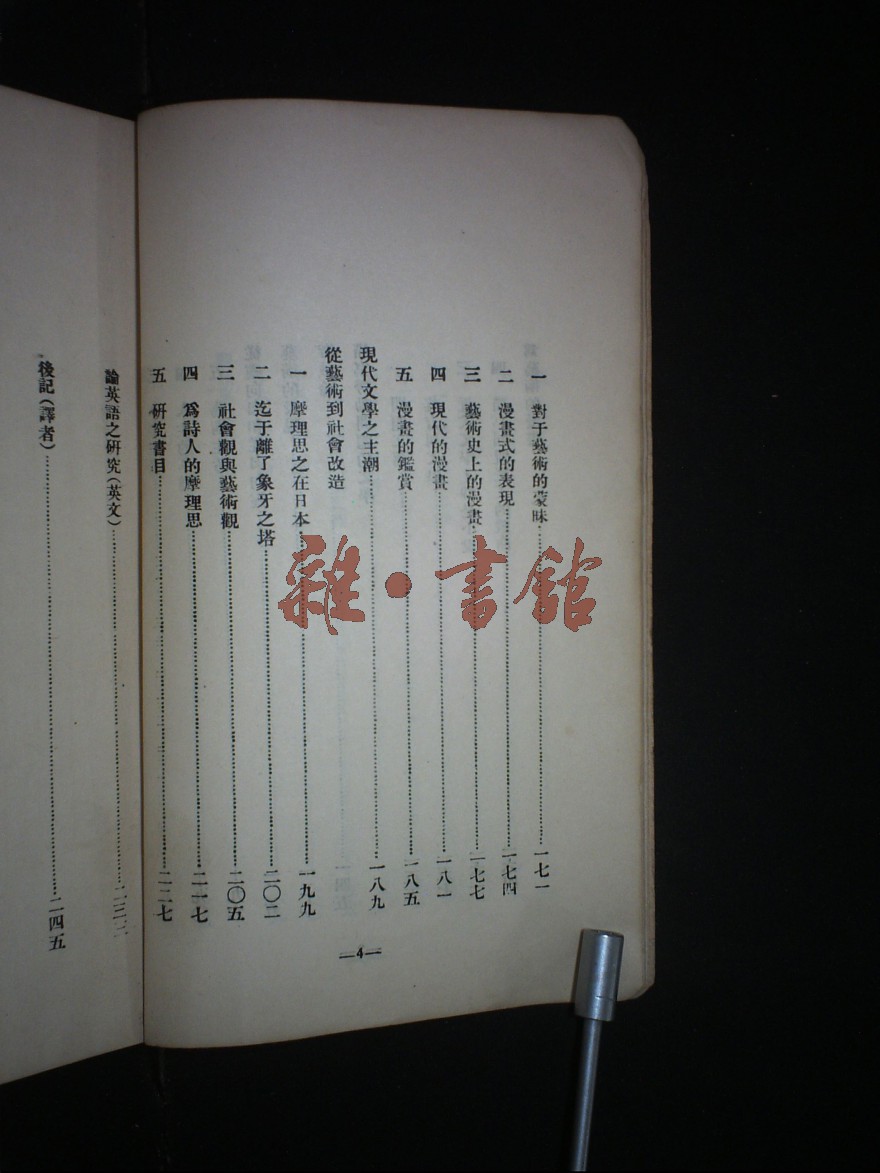 一 對于藝術的蒙昧……一七一
二 漫畫式的表現……一七四
三 藝術史上的漫畫……一七七
四 現代的漫畫……一八一
五 漫畫的鑑賞……一八五
現代文學之主潮……一八九
從藝術到社會改造
一 摩理思之在日本……一九九
二 迄于離了象牙之塔……二〇二
三 社會觀與藝術觀……二〇五
四 爲詩人的摩理思……二一七
五 研究書目……二二七
—4—
論英語之研究(英文)……二三
後記(譯者)……二四五
雜·書館